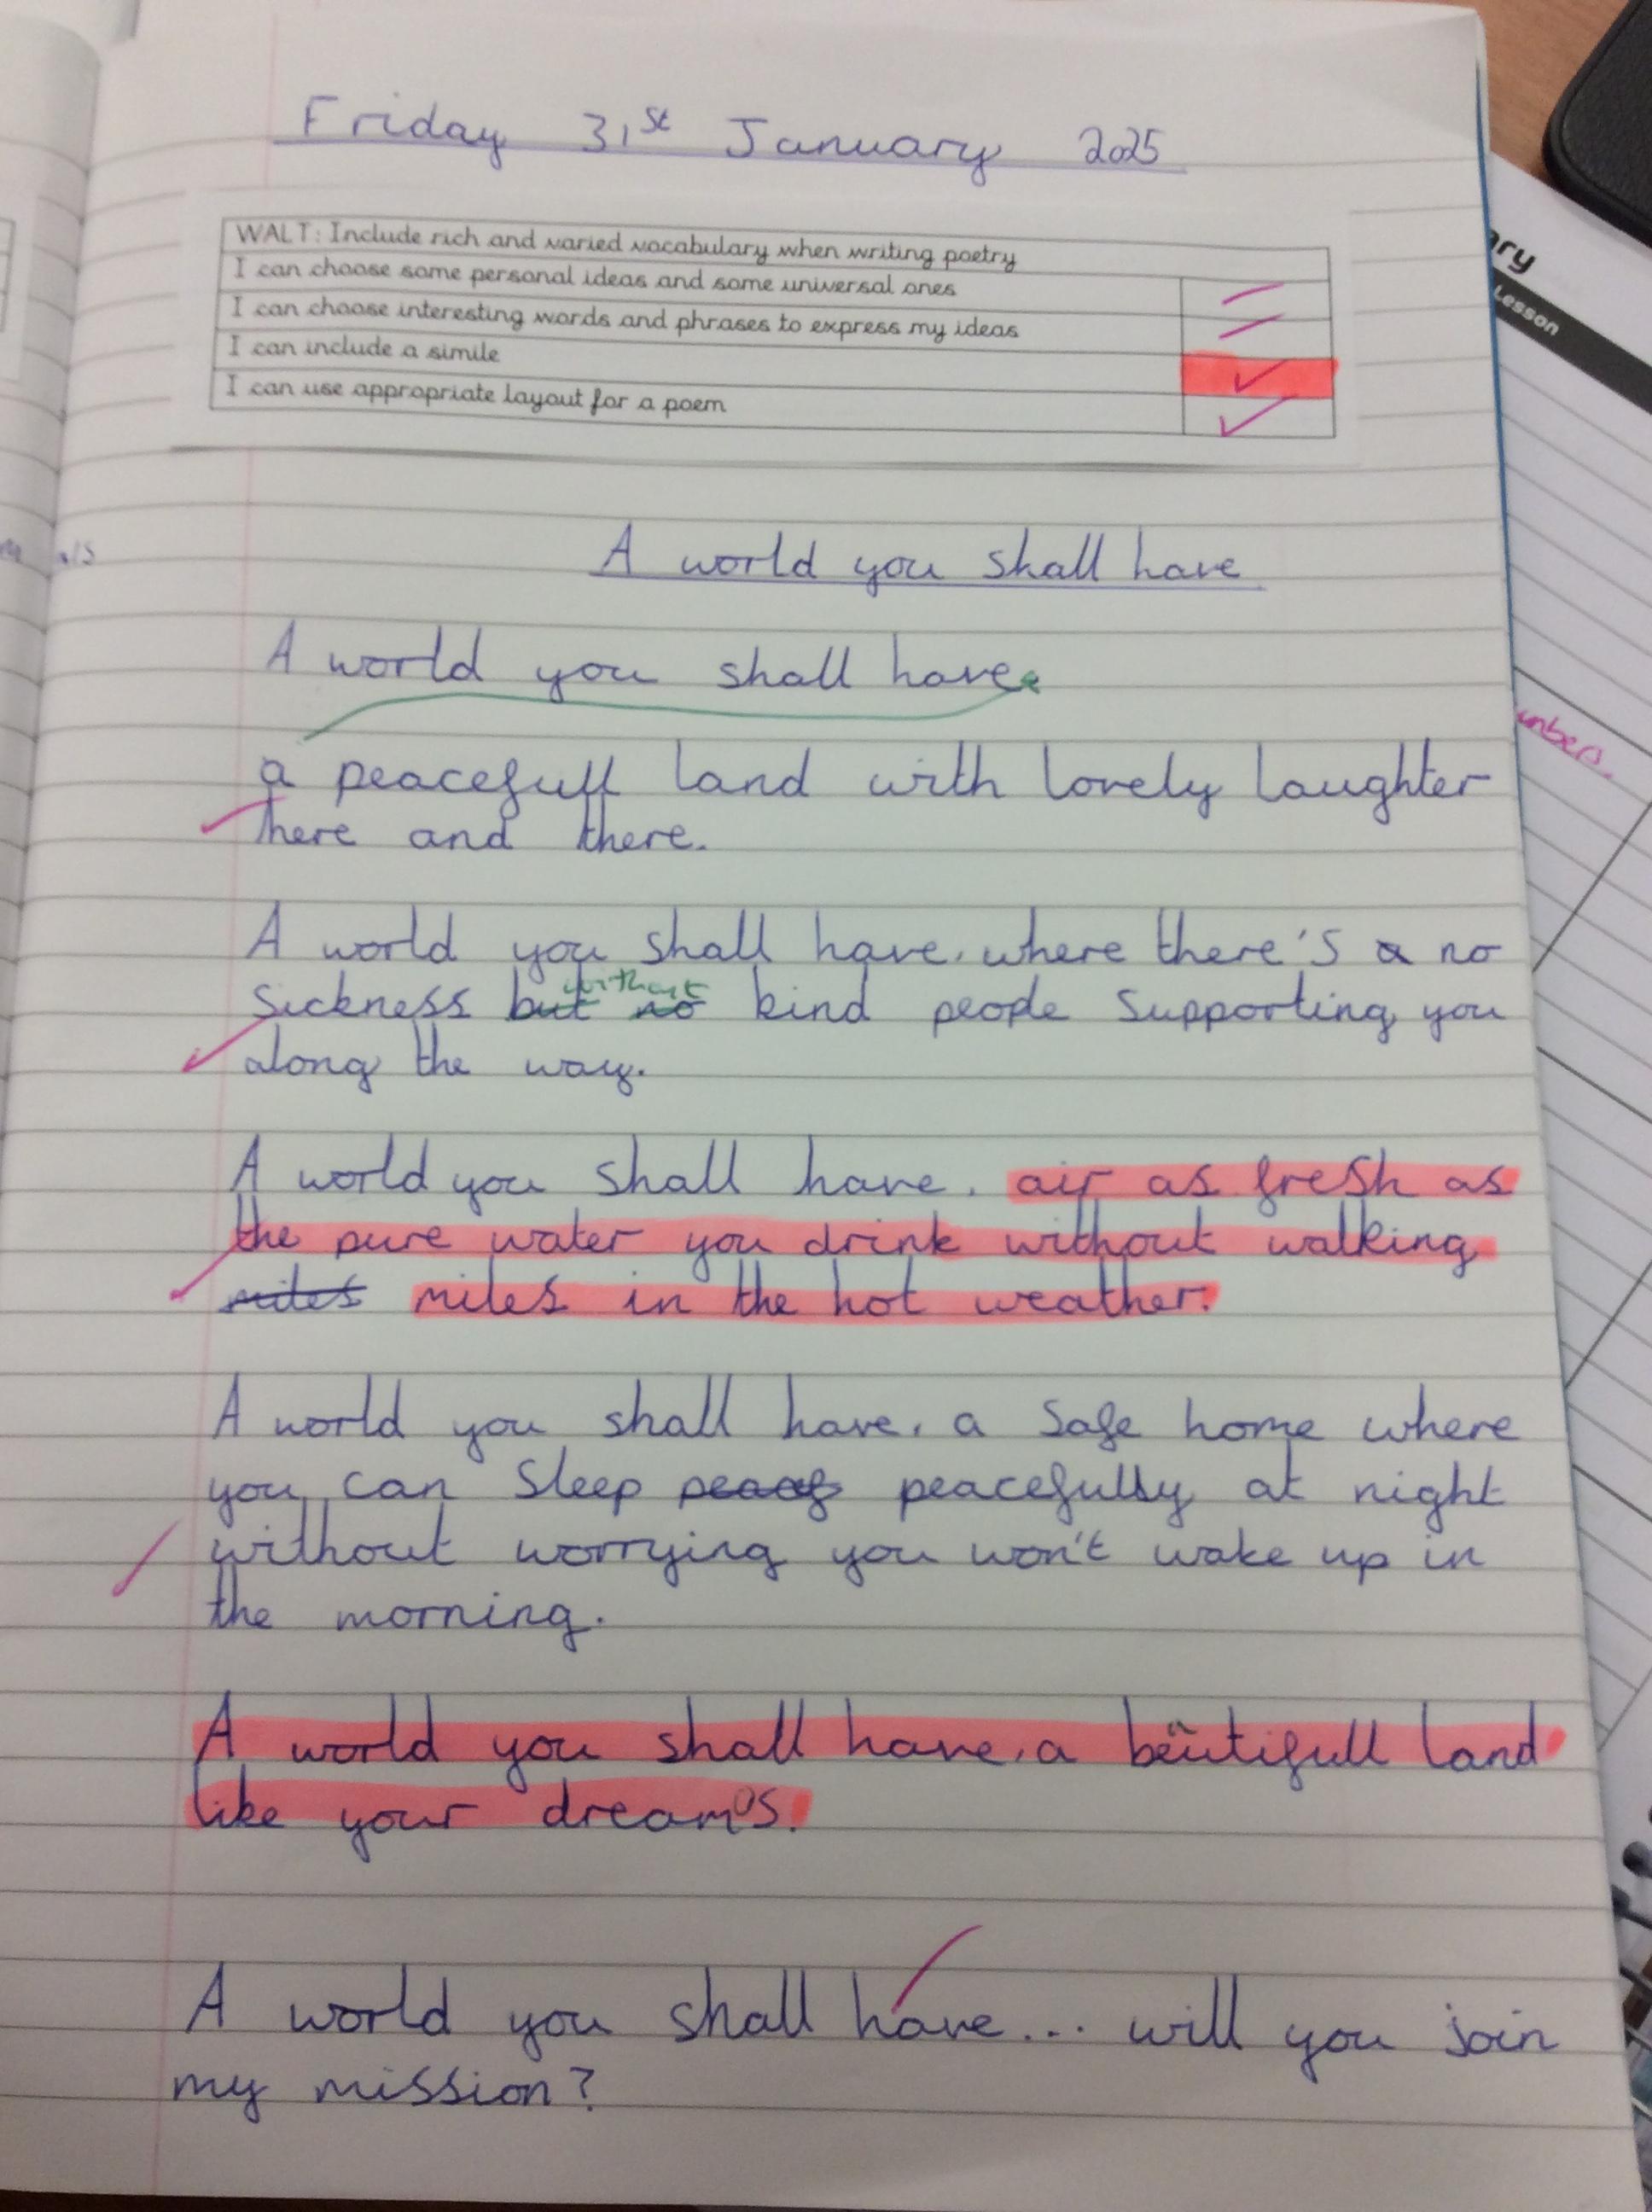 Friday 31st January 2025
WALT: Include rich and varied vocabulary when writing poetry
I can choose some personal ideas and some universal ones
I can choose interesting words and phrases to express my ideas
I can include a simile
I can use appropriate layout for a poem
A world you shall have
A world you shall have
a peacefull land with lovely laughter
here and there.
A world you shall have, where there's a no
without
sickness but no kind people supporting you
along the way.
A world you shall have, air as fresh as
the pure water you drink without walking
miles miles in the hot weather.
A world you shall have, a safe home where
you can sleep peacefully at night
without worrying you won't wake up in
the morning.
A world you shall have, a beautifull land
like your dreams.
A world you shall have... will you join
my mission?
ry
Lesson
unbers.